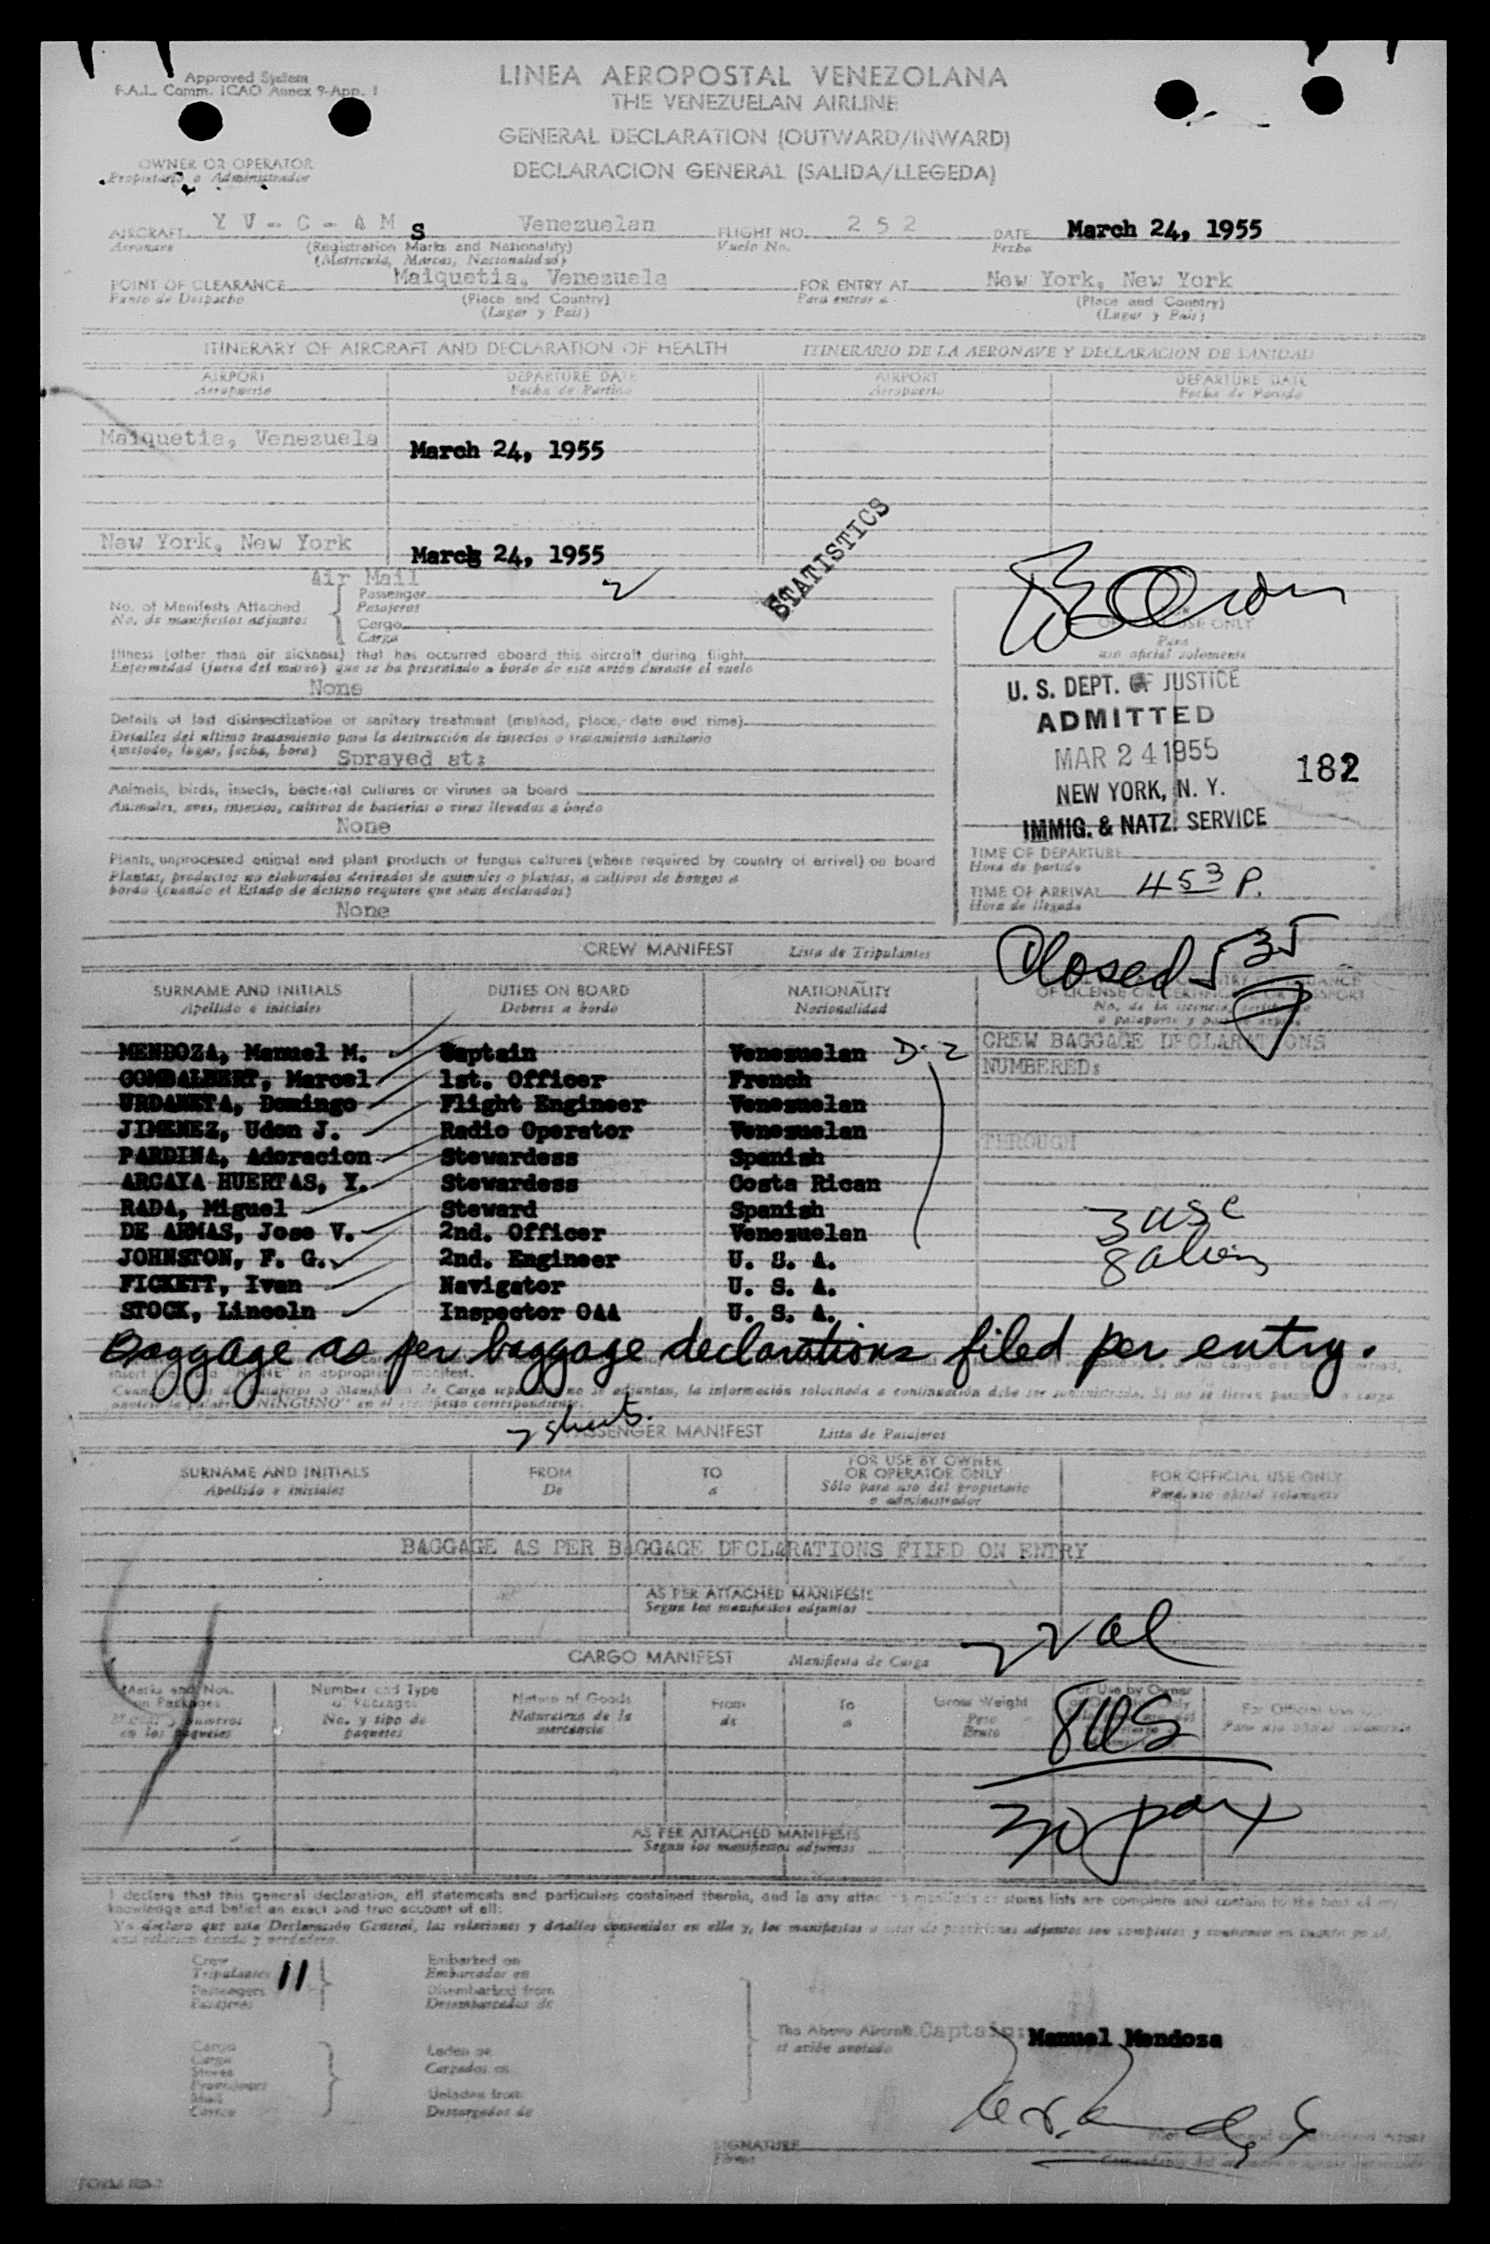 Approved System
F.A.L. Comm. ICAO Annex 9-App. 1
LINEA AEROPOSTAL VENEZOLANA
THE VENEZUELAN AIRLINE
GENERAL DECLARATION (OUTWARD/INWARD)
DECLARACION GENERAL (SALIDA/LLEGEDA)
OWNER OR OPERATOR
Propietario o Administrador
AIRCRAFT Y V - C - A M S Venezuelan FLIGHT NO. 2 5 2 DATE March 24, 1955
Aeronave (Registration Marks and Nationality) Vuelo No. Fecha
(Matricula, Marcas, Nacionalidad)
POINT OF CLEARANCE Maiquetia, Venezuela FOR ENTRY AT New York, New York
Punto de Despacho (Place and Country) Para entrar a (Place and Country)
(Lugar y Pais) (Lugar y Pais)
ITINERARY OF AIRCRAFT AND DECLARATION OF HEALTH ITINERARIO DE LA AERONAVE Y DECLARACION DE SANIDAD
AIRPORT DEPARTURE DATE AIRPORT DEPARTURE DATE
Aeropuerto Fecha de Partida Aeropuerto Fecha de Partida
Maiquetia, Venezuela March 24, 1955
New York, New York March 24, 1955
STATISTICS
Air Mail
No. of Manifests Attached Passenger 2
No. de manifiestos adjuntos Pasajeros
Cargo
Carga
OFFICIAL USE ONLY
Para
uso oficial solamente
Illness (other than air sickness) that has occurred aboard this aircraft during flight
Enfermedad (fuera del mareo) que se ha presentado a bordo de este avion durante el vuelo
None
U. S. DEPT. OF JUSTICE
ADMITTED
MAR 24 1955
NEW YORK, N. Y.
IMMIG. & NATZ. SERVICE
182
Details of last disinsectization or sanitary treatment (method, place, date and time)
Detalles del ultimo tratamiento para la destrucción de insectos o tratamiento sanitario
(metodo, lugar, fecha, hora) Sprayed at:
Animals, birds, insects, bacterial cultures or viruses on board
Animales, aves, insectos, cultivos de bacterias o virus llevados a bordo
None
Plants, unprocessed animal and plant products or fungus cultures (where required by country of arrival) on board
Plantas, productos no elaborados derivados de animales o plantas, o cultivos de hongos a
bordo (cuando el Estado de destino requiere que sean declarados)
None
TIME OF DEPARTURE
Hora de partida
TIME OF ARRIVAL 453 P.
Hora de llegada
CREW MANIFEST Lista de Tripulantes
Closed 535
SURNAME AND INITIALS DUTIES ON BOARD NATIONALITY
Apellido e iniciales Deberes a bordo Nacionalidad
CREW BAGGAGE DECLARATIONS
NUMBERED:
THROUGH
MENDOZA, Manuel M. Captain Venezuelan D-2
GOMBALBERT, Marcel 1st. Officer French
URDANETA, Domingo Flight Engineer Venezuelan
JIMENEZ, Udon J. Radio Operator Venezuelan
PARDINA, Adoracion Stewardess Spanish
ARCAYA HUERTAS, Y. Stewardess Costa Rican
RADA, Miguel Steward Spanish
DE ARMAS, Jose V. 2nd. Officer Venezuelan
JOHNSTON, F. G. 2nd. Engineer U. S. A.
FICKETT, Ivan Navigator U. S. A.
STOCK, Lincoln Inspector CAA U. S. A.
3 usc
8 aliens
Baggage as per baggage declarations filed per entry.
2 sheets.
PASSENGER MANIFEST Lista de Pasajeros
SURNAME AND INITIALS FROM TO FOR USE BY OWNER OR OPERATOR ONLY FOR OFFICIAL USE ONLY
Apellido e iniciales De a Sólo para uso del propietario o administrador Para uso oficial solamente
BAGGAGE AS PER BAGGAGE DECLARATIONS FILED ON ENTRY
AS PER ATTACHED MANIFESTS
Segun los manifiestos adjuntos
22 al
CARGO MANIFEST Manifiesto de Carga
Marks and Nos. on Packages Number and Type of Packages Nature of Goods From To Gross Weight For Official Use Only
No. y tipo de paquetes Naturaleza de la mercancia de a Peso Bruto Para uso oficial solamente
8 US
30 pax
AS PER ATTACHED MANIFESTS
Segun los manifiestos adjuntos
I declare that this general declaration, all statements and particulars contained therein, and in any attached manifests or stores lists are complete and contain to the best of my
knowledge and belief an exact and true account of all:
Crew 11 Embarked on
Tripulantes Embarcados en
Passengers Disembarked from
Pasajeros Desembarcados de
The Above Aircraft. Captain: Manuel Mendoza
Cargo Laden on
Carga Cargados en
Stores
Unladen from
Descargados de
SIGNATURE
Firma